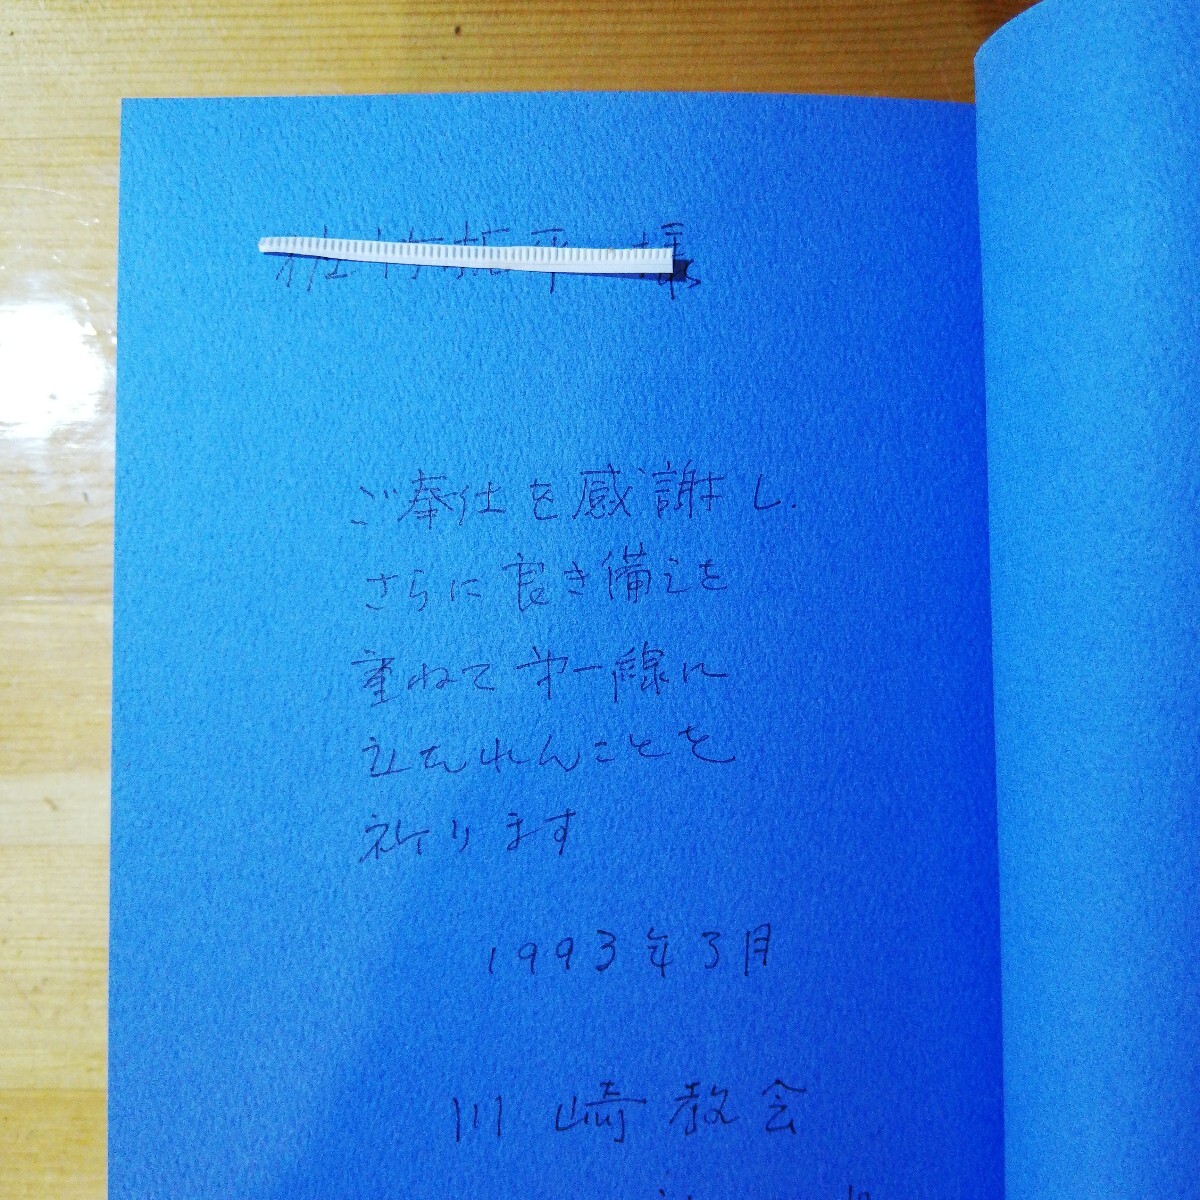 様
ご奉仕を感謝し、
さらに良き備えを
重ねて第一線に
立たれんことを
祈ります
1993年3月
川崎教会